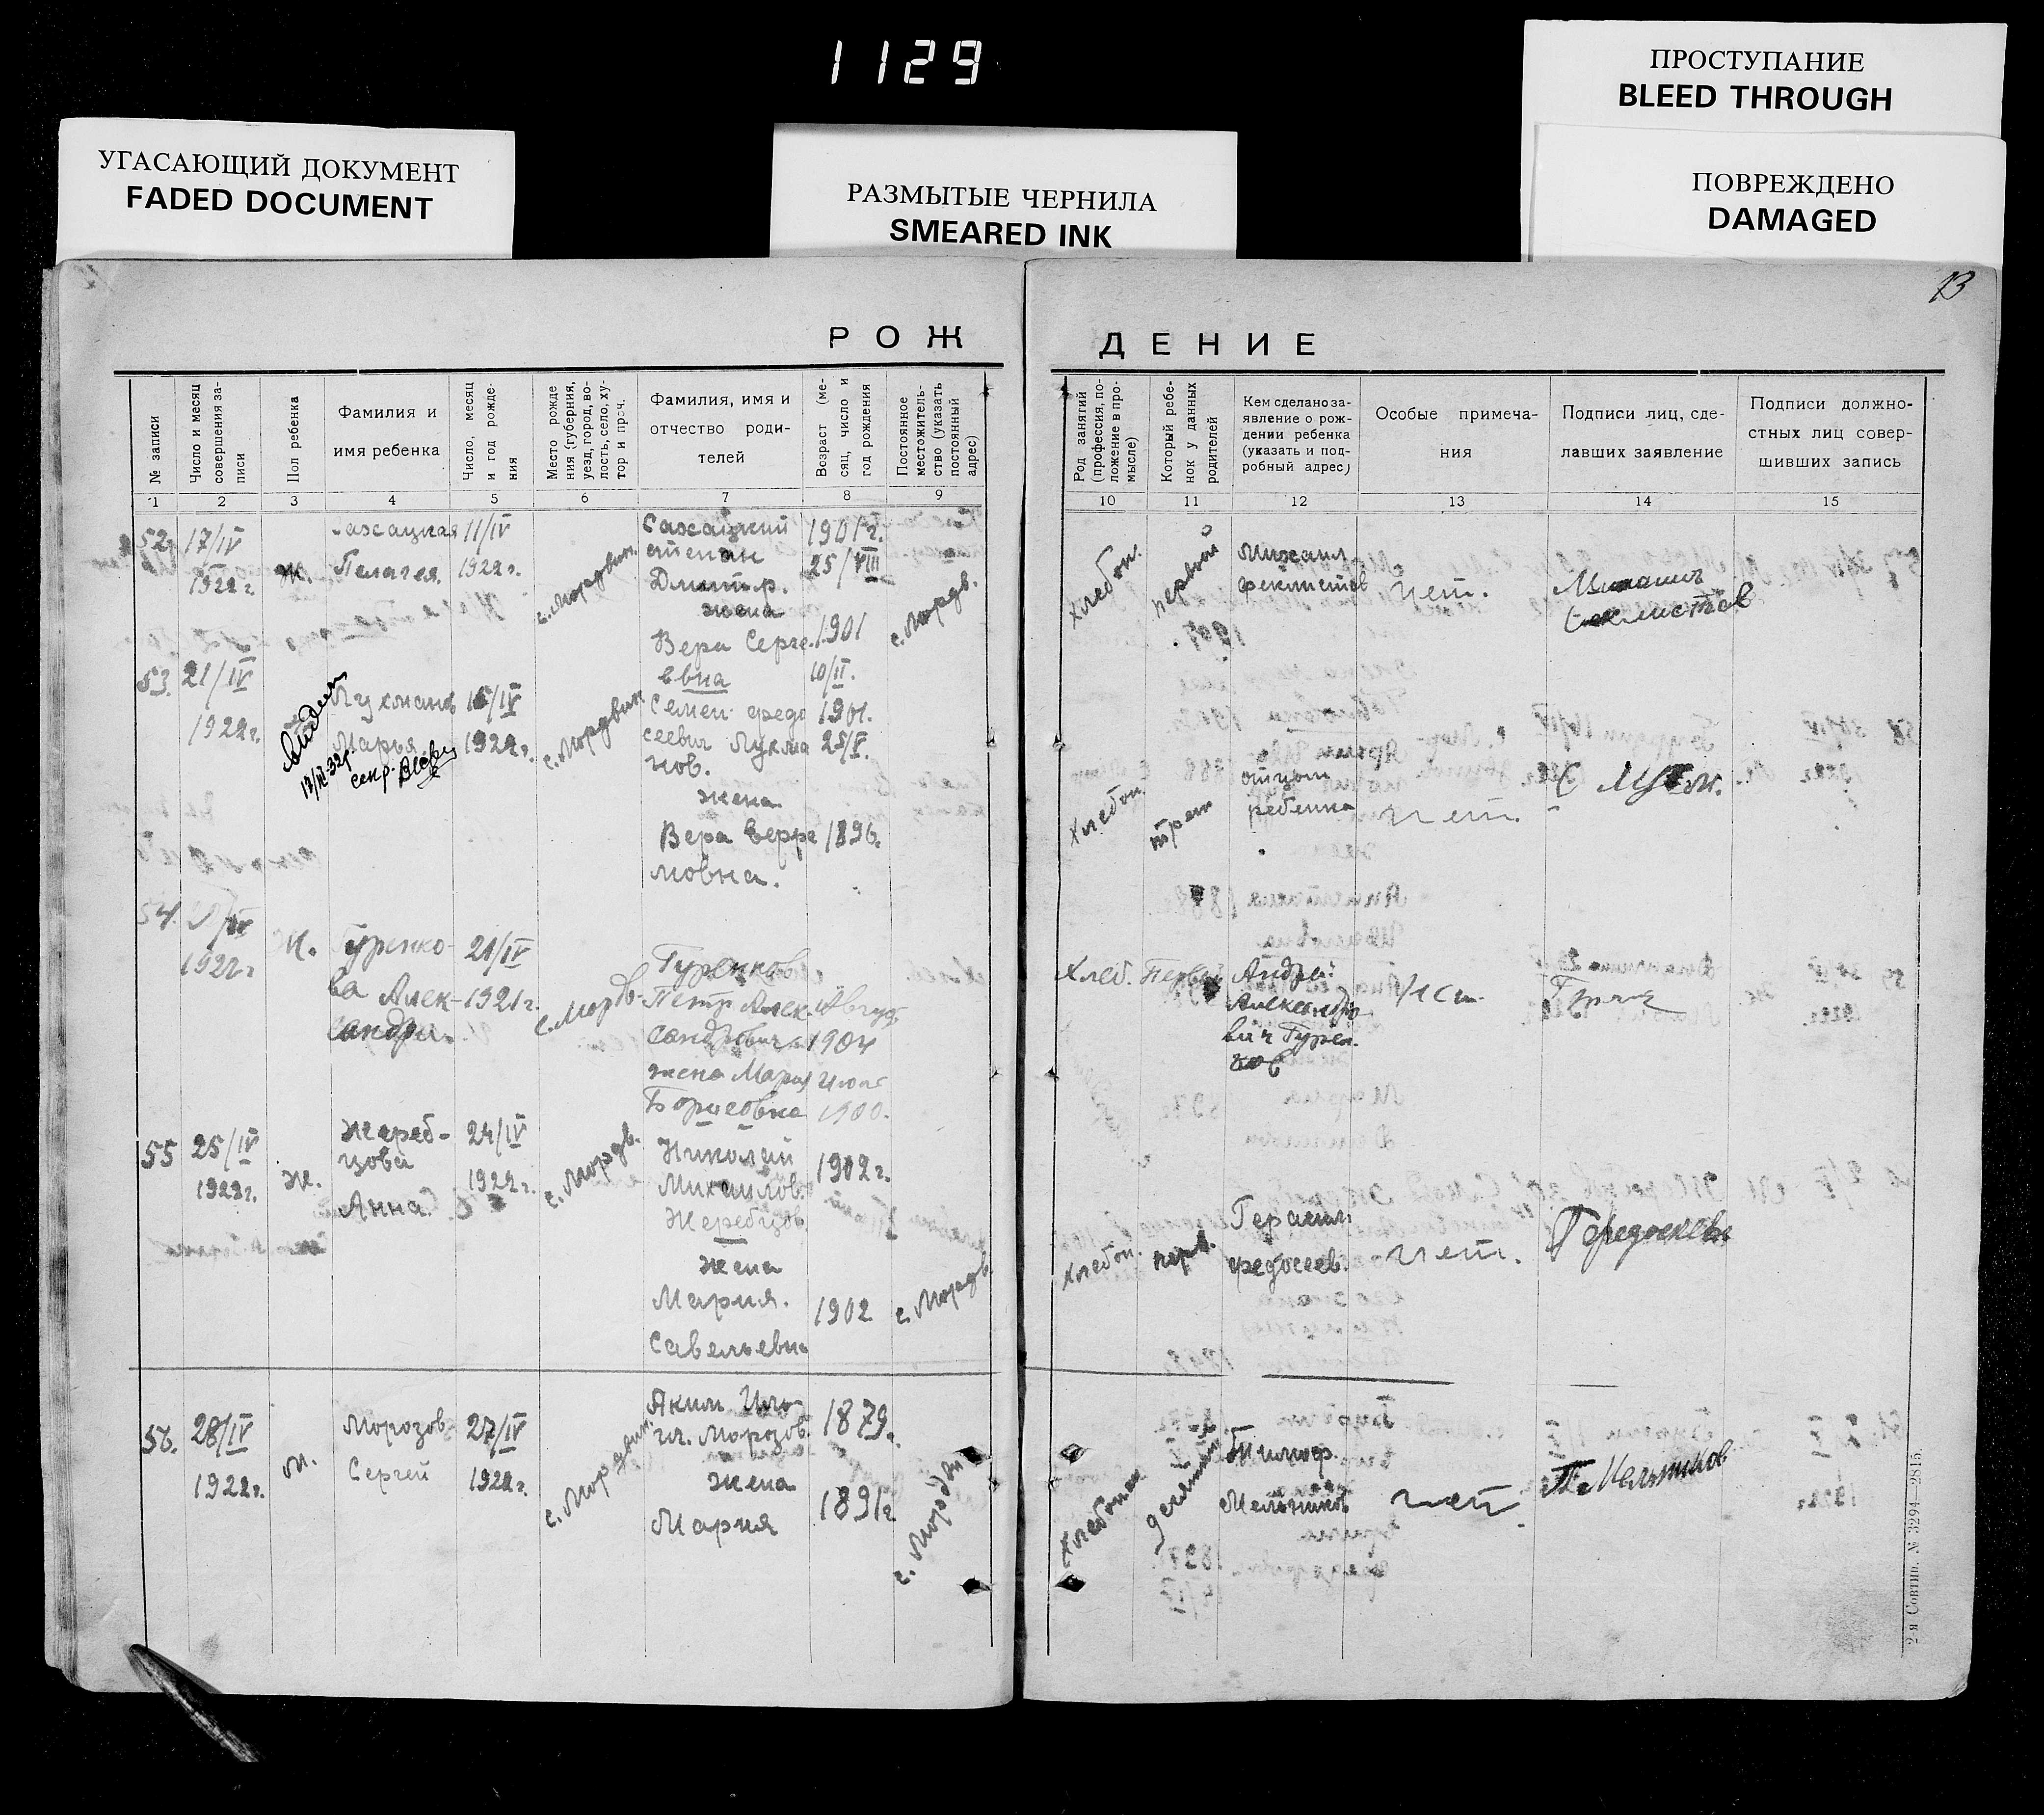 1129
ПРОСТУПАНИЕ
BLEED THROUGH
УГАСАЮЩИЙ ДОКУМЕНТ
FADED DOCUMENT
РАЗМЫТЫЕ ЧЕРНИЛА
SMEARED INK
ПОВРЕЖДЕНО
DAMAGED
13
РОЖ
ДЕНИЕ
№ записи
Число и месяц
совершения за-
писи
Пол ребенка
Фамилия и
имя ребенка
Число, месяц
и год рожде-
ния
Место рожде
ния (губерния,
уезд, город, во-
лость, село, ху-
тор и проч.
Фамилия, имя и
отчество роди-
телей
Возраст (ме-
сяц, число и
год рождения
Постоянное
местожитель-
ство (указать
постоянный
адрес)
Род занятий
(профессия, по-
ложение в про-
мысле)
Который ребе-
нок у данных
родителей
Кем сделано за-
явление о рож-
дении ребенка
(указать и под-
робный адрес)
Особые примеча-
ния
Подписи лиц, сде-
лавших заявление
Подписи должно-
стных лиц совер-
шивших запись
1 2 3 4 5 6 7 8 9
10 11 12 13 14 15
52.
17/IV
1922г.
ж.
Пелагея.
11/IV
1922г.
с. Мордвин.
Степан
Дмитр.
жена
Вера Серге
евна
1901г.
25/VIII
1901
10/II.
с. Мордв.
Хлебоп.
первый
Михаил
Феклистов
нет.
Феклистов
53.
21/IV
1922г.
17/VI-32г.
секр.
Лукманов
Марья
1922г.
с. Мордвин
Семен Федо
сеевич Лукма
нов.
жена
Вера Ефре
мовна.
1901.
25/V.
1896г.
Хлебоп.
трет
отцом
ребенка
нет.
54.
1922г
Ж.
Гуренко-
ва Алек-
сандра.
21/IV
1921г.
с. Мордв.
Гуренков
Петр Алек.
сандрович
жена Мария
Борисовна
Август
1904
Июль
1900.
Хлеб.
Первый
Андрей
Александро
вич Гурен.
ков
Нет.
55
25/IV
1922г.
ж.
Жереб-
цова
Анна.
24/IV
1922г.
с. Мордв.
Николай
Михаилов.
Жеребцов.
жена
Мария.
Савельевна
1902г.
1902
с. Мордв.
Хлебоп.
перв.
Герасим.
Федосеев.
нет.
Г Федосеев
56.
28/IV
1922г.
м.
Морозов
Сергей
27/IV
1922г.
с. Мордвин.
Яким Иль-
ич. Морозов.
жена
Мария
1879г.
1891г.
с. Мордвин
Хлебопаш
девятый
Тимоф.
Мельников
нет.
Т. Мельников
2-я Совтип. № 3294—2815.